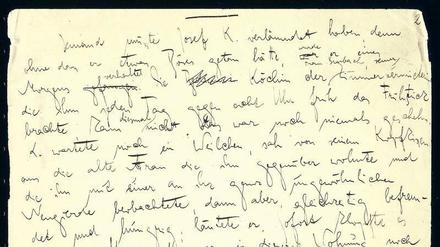 2
Jemand musste Josef K. verläumdet haben, denn
ohne dass er etwas Böses getan hätte, wurde er eines
Morgens verhaftet Die Köchin der Zimmervermieterin
die ihm jeden Tag gegen acht Uhr früh das Frühstück
brachte kam diesmal nicht. Das war noch niemals geschehn.
K. wartete noch ein Weilchen, sah von seinem Kopfkissen
aus die alte Frau die ihm gegenüber wohnte und
die ihn mit einer an ihr ganz ungewöhnlichen
Neugierde beobachtete, dann aber, gleichzeitig befrem-
det und hungrig, läutete er, sofort klopfte es
in dieser Wohnung noch